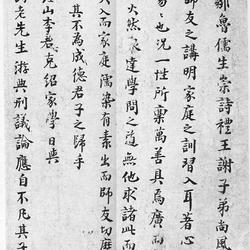 鄒魯儒生崇詩禮王謝子弟尚風
師友之講明家庭之訓習入耳著心
易之也況一性所稟萬善具焉廣而
火然泉達學問之道無他求諸此而
入而家庭濡染有素出而師友切磨
其不為成德君子之歸乎
山李君克紹家學日與
老先生游典刑議論應自不凡其子